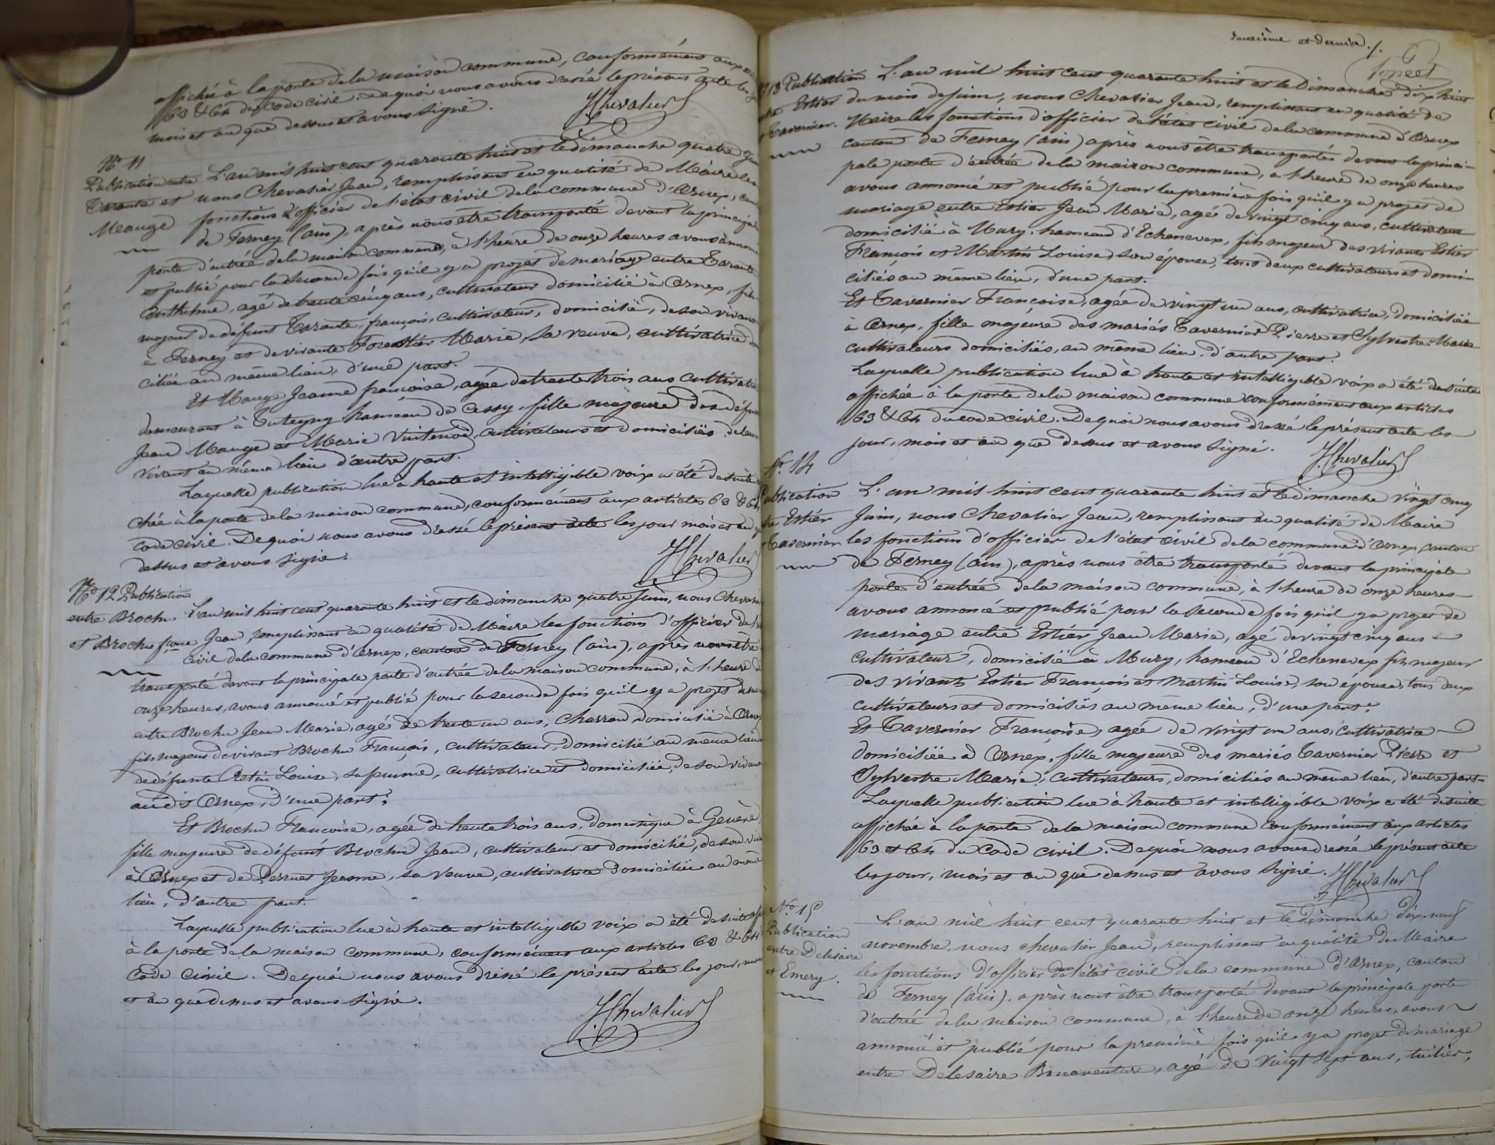 affiché à la porte de la maison commune, conformément aux
63 & 64 du Code civil. De quoi nous avons dressé le présent acte les
mois et an que dessus et avons signé.
JChevalier
No 11
Publication entre
Tarante et
Mauge
L'an mil huit cent quarante huit et le dimanche quatre
nous Chevalier Jean, remplissant en qualité de Maire les
fonctions d'officier de l'état civil de la commune d'Ornex,
de Ferney (ain), après nous être transporté devant la principale
porte d'entrée de la maison commune, à l'heure de onze heures avons
et publié pour la seconde fois qu'il y a projet de mariage entre
agé de trente cinq ans, cultivateur domicilié à Ornex, fils
majeur de défunt françois, cultivateur, domicilié, de son vivant
à Ferney et de vivante Marie, sa veuve, cultivatrice
ciliée au même lieu, d'une part.
Et Mauge Jeanne françoise, agée de trente trois ans cultivatrice
demeurant à hameau de Cessy, fille majeure des défunts
Jean Mauge et Marie cultivateurs et domiciliés de leur
vivant au même lieu d'autre part.
Laquelle publication lue à haute et intelligible voix a été de suite
chée à la porte de la maison commune, conformément aux articles 63 & 64
Code civil. De quoi nous avons dressé le présent acte les jour mois et an
dessus et avons signé.
JChevalier
No 12 Publication
entre Brochu
et Brochu fçoise
L'an mil huit cent quarante huit et le dimanche quatre Juin, nous Chevalier
Jean remplissant en qualité de Maire les fonctions d'officier de
civil de la commune d'Ornex, canton de Ferney (ain), après nous être
transporté devant la principale porte d'entrée de la maison commune, à l'heure de
onze heures, avons annoncé et publié pour la seconde fois qu'il y a projet de
entre Brochu Jean Marie, agé de trente un ans, Charron domicilié à Ornex
fils majeur de vivant Brochu François, cultivateur, domicilié au même lieu
de défunte Louise, sa femme, cultivatrice et domiciliée, de son vivant
audit Ornex, d'une part.
Et Brochu Françoise, agée de trente trois ans, domestique à Genève,
fille majeure de défunt Brochu Jean, cultivateur et domicilié, de son
à Ornex et de Perrue Jerome, sa veuve, cultivatrice domiciliée au même
lieu, d'autre part.
Laquelle publication lue à haute et intelligible voix a été de suite
à la porte de la maison commune, conformément aux articles 63 & 64
Code civil. De quoi nous avons dressé le présent acte les jour, mois
et an que dessus et avons signé.
JChevalier
et dernier./.
6
No 13 Publication
Estier
Tavernier.
L'an mil huit cent quarante huit et le dimanche dix huit
du mois de juin, nous Chevalier Jean, remplissant en qualité de
Maire les fonctions d'officier de l'état civil de la commune d'Ornex
canton de Ferney (ain) après nous être transportés devant la princi-
pale porte d'entrée de la maison commune, à l'heure de onze heures
avons annoncé et publié pour la première fois qu'il y a projet de
mariage entre Estier Jean Marie, agé de vingt cinq ans, cultivateur
domicilié à Mury, hameau d'Echenevex, fils majeur des vivants Estier
François et Martin Louise son épouse, tous deux cultivateurs et domi-
ciliés au même lieu, d'une part.
Et Tavernier Françoise, agée de vingt un ans, cultivatrice, domiciliée
à Ornex, fille majeure des mariés Tavernier Pierre et Sylvestre Marie
cultivateurs domiciliés, au même lieu, d'autre part.
Laquelle publication lue à haute et intelligible voix a été de suite
affichée à la porte de la maison commune conformément aux articles
63 & 64 du code civil. De quoi nous avons dressé le présent acte les
jour, mois et an que dessus et avons signé.
JChevalier
No. 14
Publication
Estier
Tavernier
L'an mil huit cent quarante huit et le dimanche vingt cinq
Juin, nous Chevalier Jean, remplissant en qualité de Maire
les fonctions d'officier de l'état civil de la commune d'Ornex canton
de Ferney (ain), après nous être transporté devant la principale
porte d'entrée de la maison commune, à l'heure de onze heures
avons annoncé et publié pour la seconde fois qu'il y a projet de
mariage entre Estier Jean Marie, agé de vingt cinq ans
cultivateur, domicilié à Mury, hameau d'Echenevex fils majeur
des vivants Estier François et Martin Louise, son épouse, tous deux
cultivateurs et domiciliés au même lieu, d'une part.
Et Tavernier Françoise, agée de vingt un ans, cultivatrice
domiciliée à Ornex, fille majeure des mariés Tavernier Pierre et
Sylvestre Marie, cultivateurs, domiciliés au même lieu, d'autre part.
Laquelle publication lue à haute et intelligible voix a été de suite
affichée à la porte de la maison commune conformément aux articles
63 et 64 du Code civil. De quoi nous avons dressé le présent acte
les jour, mois et an que dessus et avons signé.
JChevalier
No. 15
Publication
entre Delesaire
et Emery.
L'an mil huit cent quarante huit et le dimanche dix-neuf
novembre nous chevalier Jean, remplissant en qualité de Maire
les fonctions d'officier de l'état civil de la commune d'Ornex, canton
de Ferney (ain). après nous être transporté devant la principale porte
d'entrée de la maison commune, à l'heure de onze heures, avons
annoncé et publié pour la première fois qu'il y a projet de mariage
entre Delesaire Bonaventure, agé de vingt sept ans, tuilier,